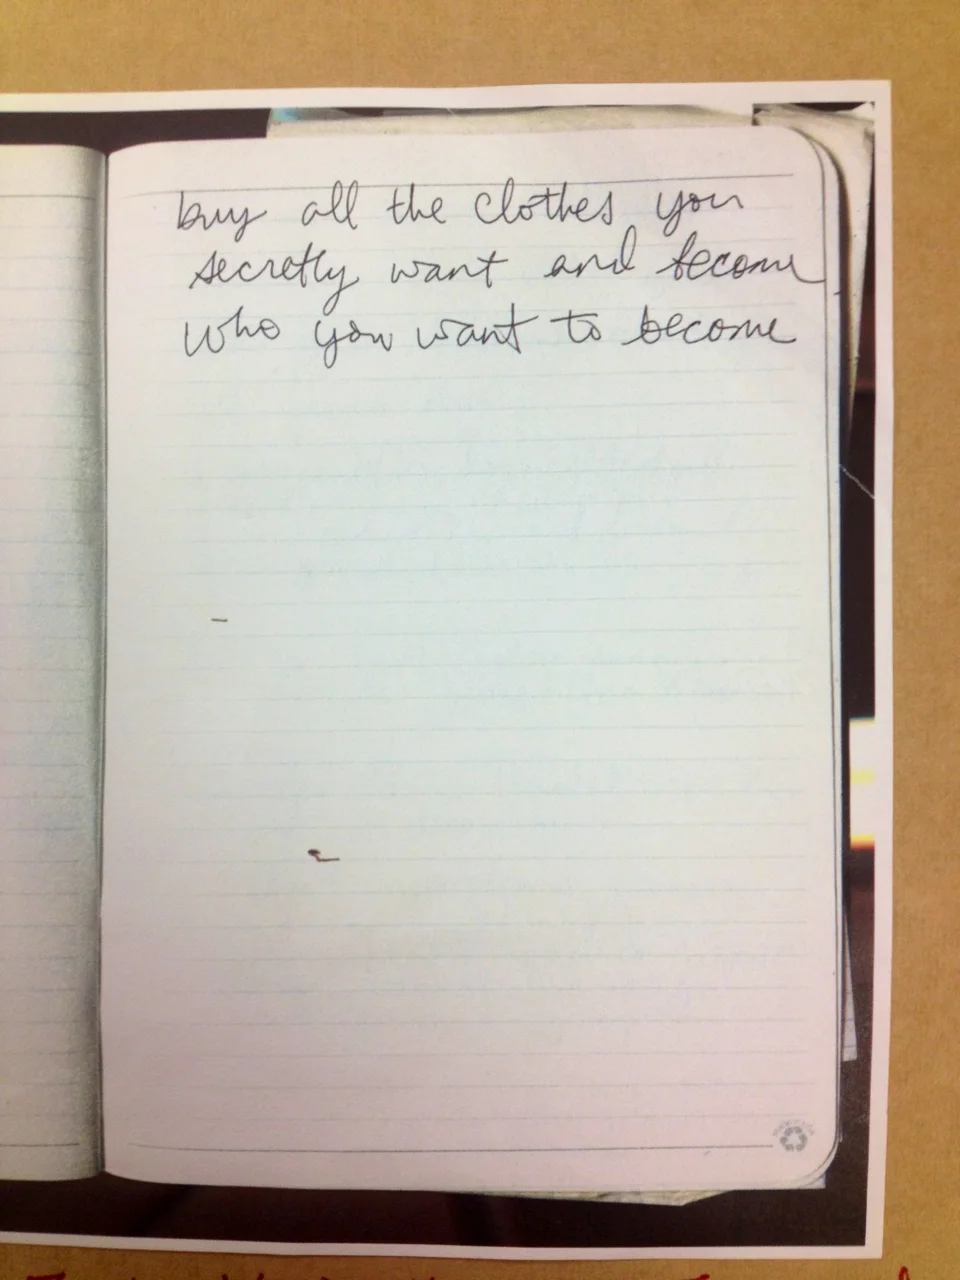 buy all the clothes you
secretly want and become
who you want to become